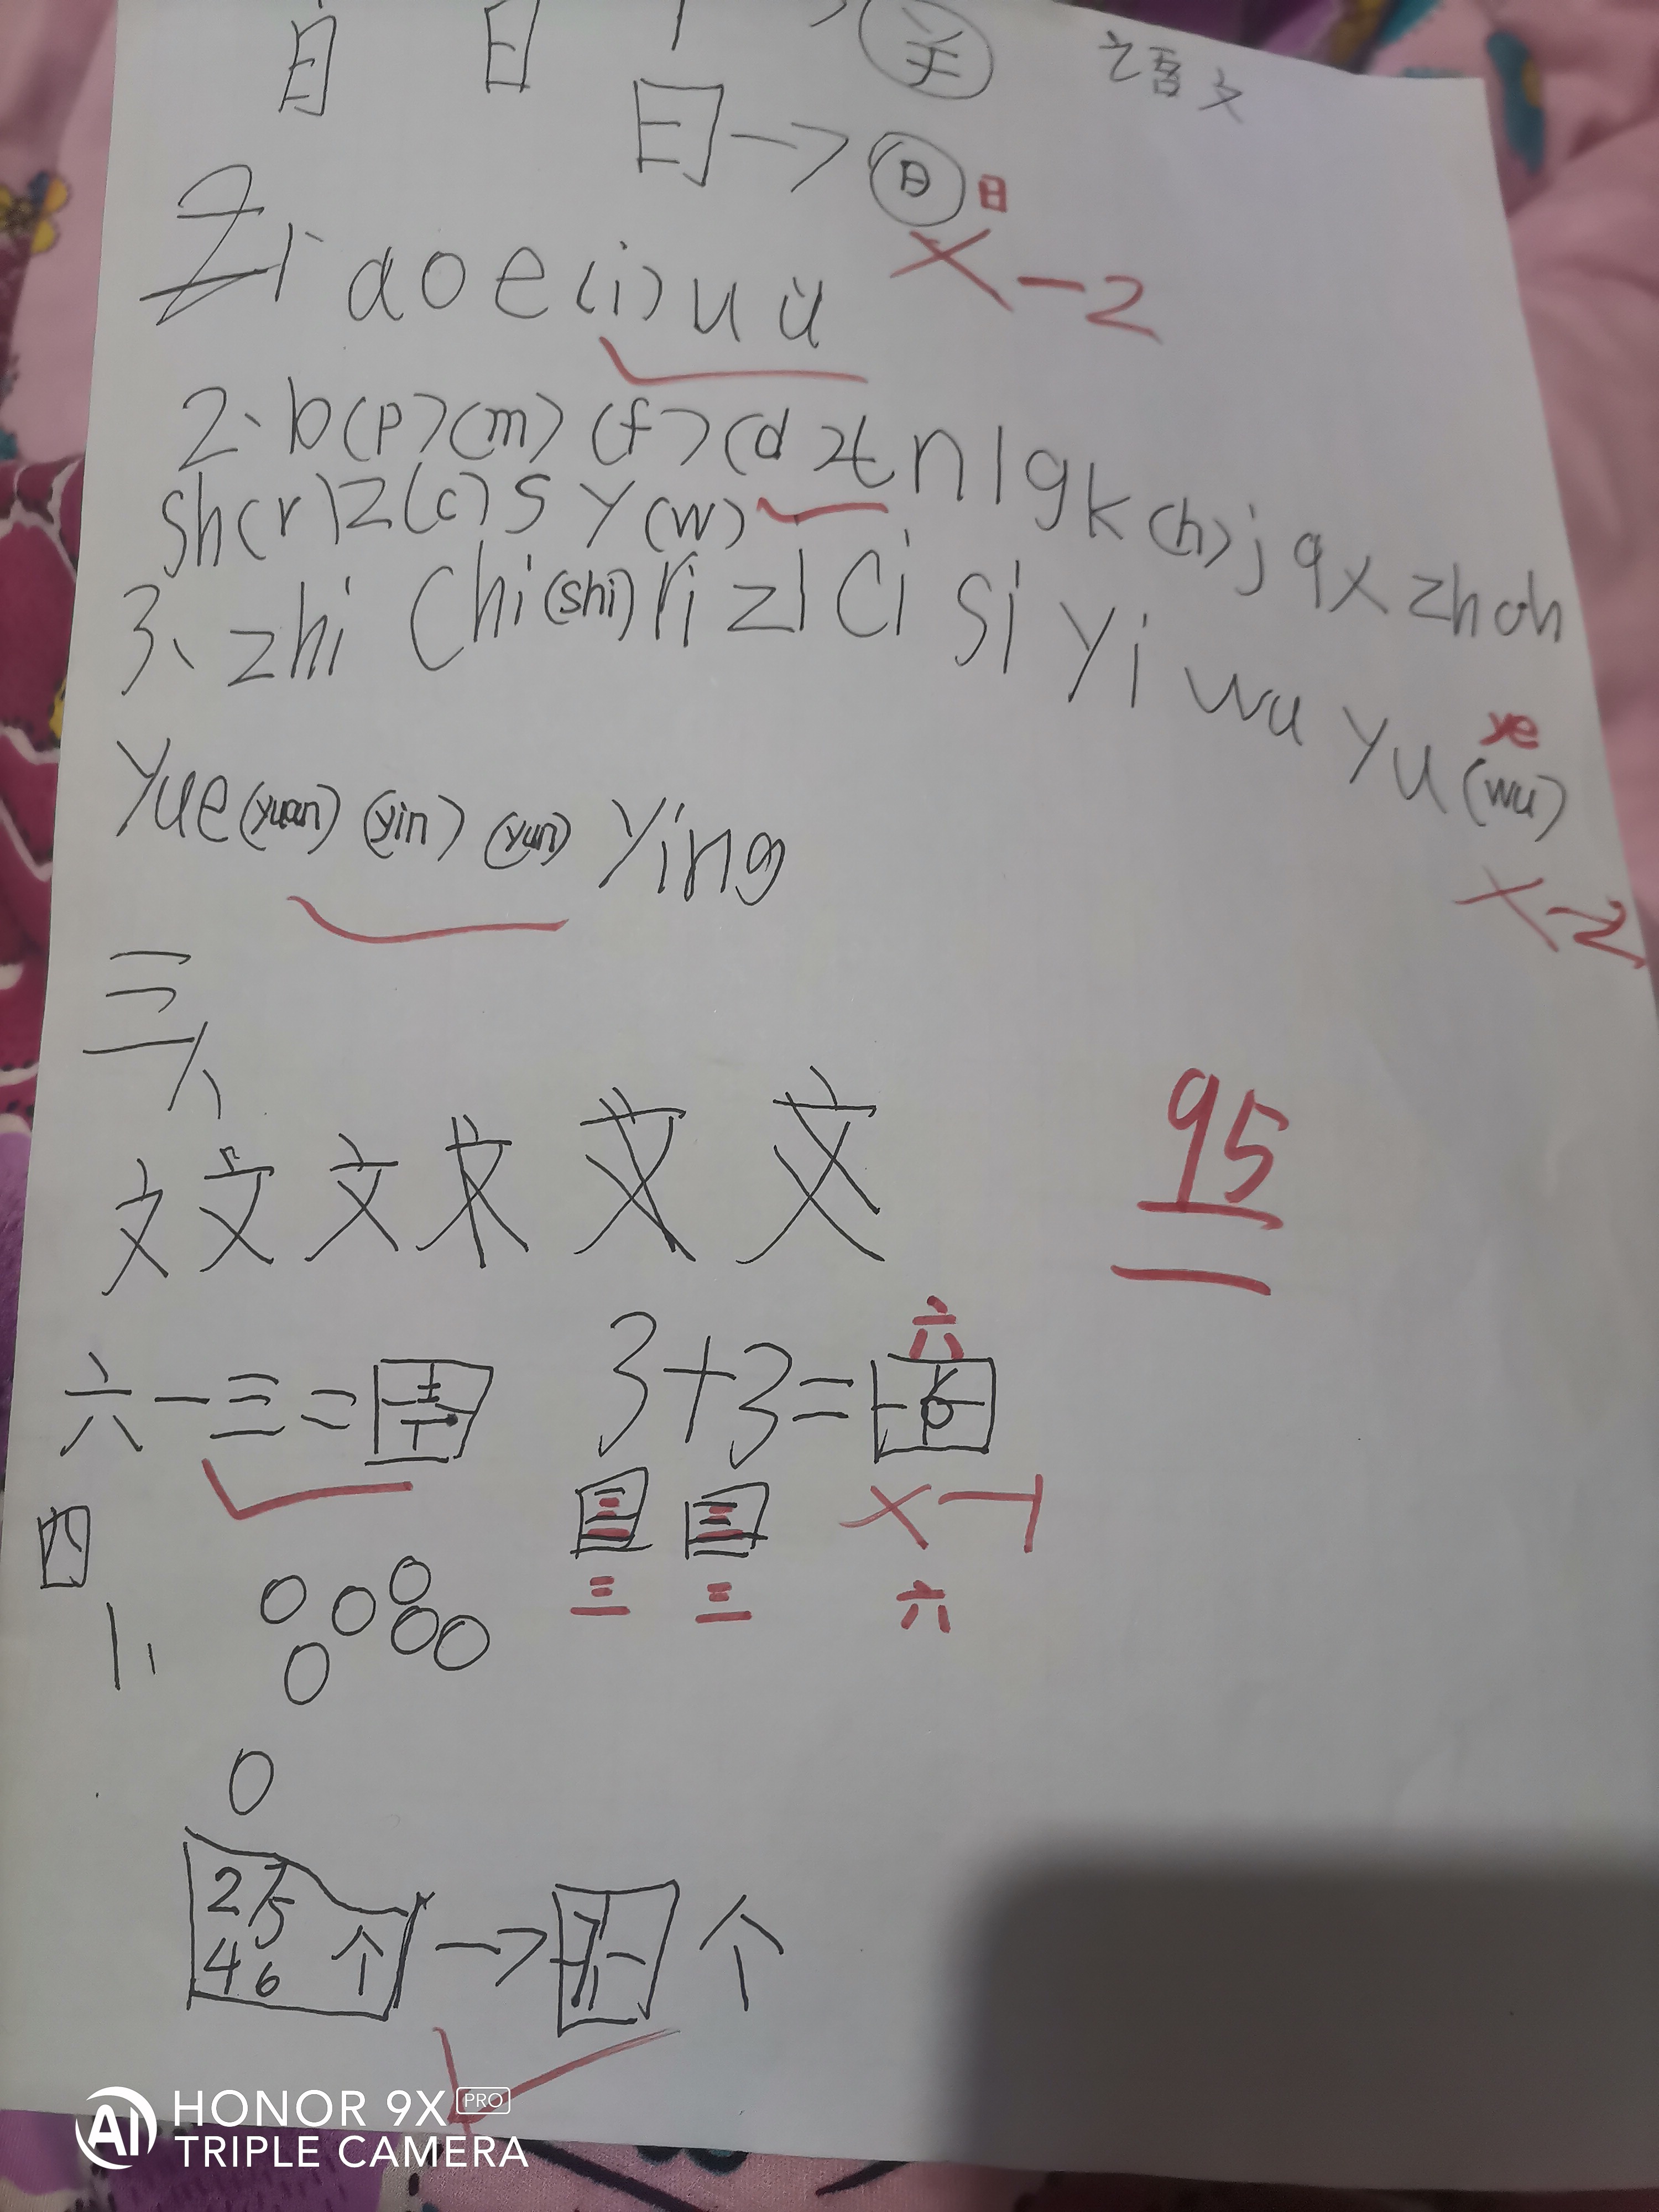 语文
日 → 日 日
× -2
1、 a o e (i) u ü
2、 b (p) (m) (f) (d) t n l g k (h) j q x zh ch
sh (r) z (c) s y (w)
3、 zhi chi (shi) ri zi ci si yi wu yu (wu) ye
× -2
yue (yuan) (yin) (yun) ying
三、
文 文 文 文 文
95
六 一 三 = 3+3= 6 六
三 三 × -1
三 三 六
四
1、
0
2 5
4 6 个 → 个
AI HONOR 9X PRO
TRIPLE CAMERA